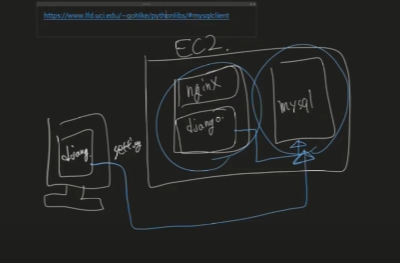 https://www.lfd.uci.edu/~gohlke/pythonlibs/#mysqlclient
EC2.
nginx
django
mysql
django.
setting